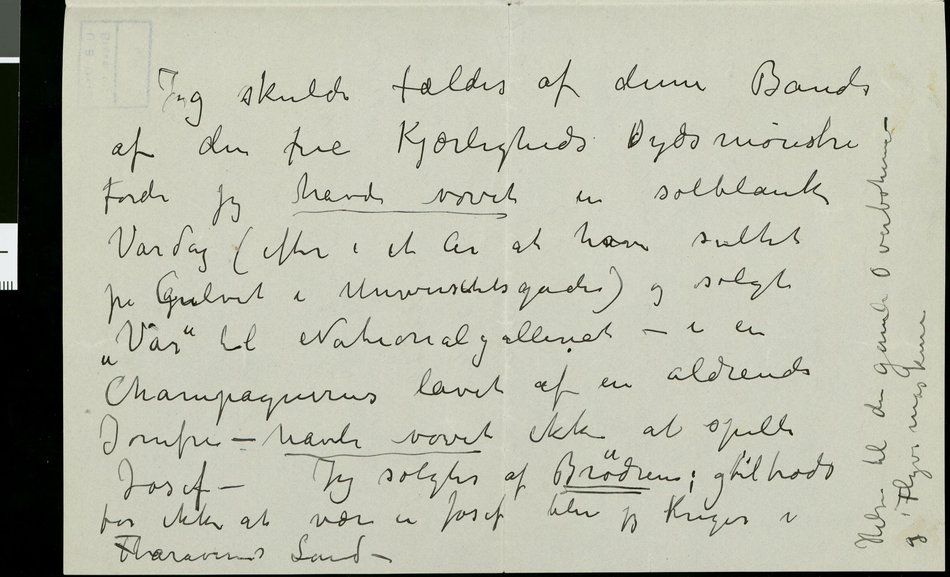 Jeg skulde fældes af denne Bande
af den frie Kjærligheds Dydsmønstre
Fordi jeg havde vovet en solblank
Vårdag (efter i et År at have sultet
på Gulvet i Universitetsgaden) og solgt
„Vår" til Nationalgalleriet – i en
Champagnerus lavet af en aldrende
Jomfru – havde vovet ikke at spille
Josef – Jeg solgtes af Brödrene; og tiltrods
for ikke at være en Josef blev jeg Kriger i
Faraoernes Land –
Hilsen til den gamle
og i Flyvemaskine